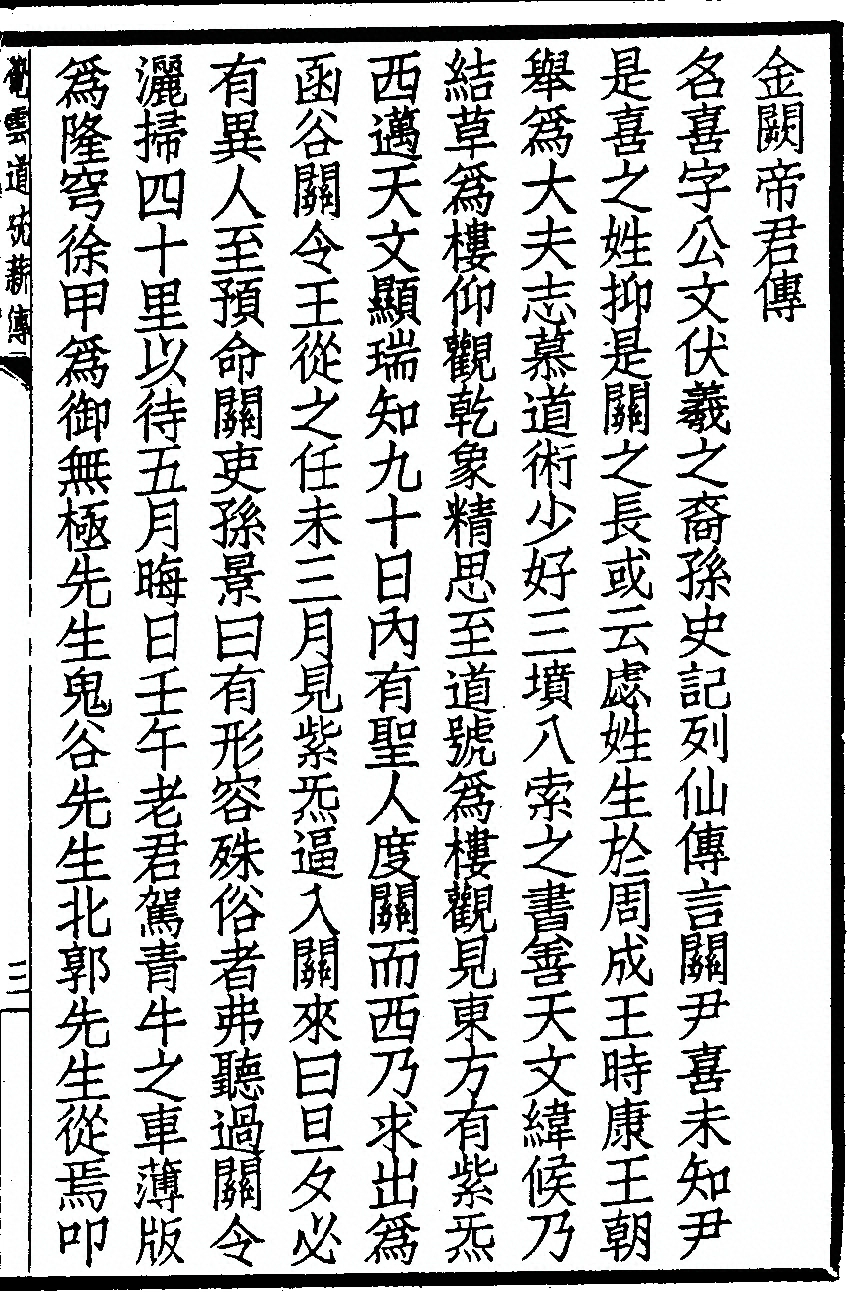 金闕帝君傳
名喜字公文伏羲之裔孫史記列仙傳言關尹喜未知尹
是喜之姓抑是關之長或云處姓生於周成王時康王朝
舉爲大夫志慕道術少好三墳八索之書善天文緯候乃
結草爲樓仰觀乾象精思至道號爲樓觀見東方有紫炁
西邁天文顯瑞知九十日內有聖人度關而西乃求出爲
函谷關令王從之任未三月見紫炁逼入關來曰旦夕必
有異人至預命關吏孫景曰有形容殊俗者弗聽過關令
灑掃四十里以待五月晦日壬午老君駕青牛之車薄版
爲隆穹徐甲爲御無極先生鬼谷先生北郭先生從焉叩
覺雲道統薪傳
三